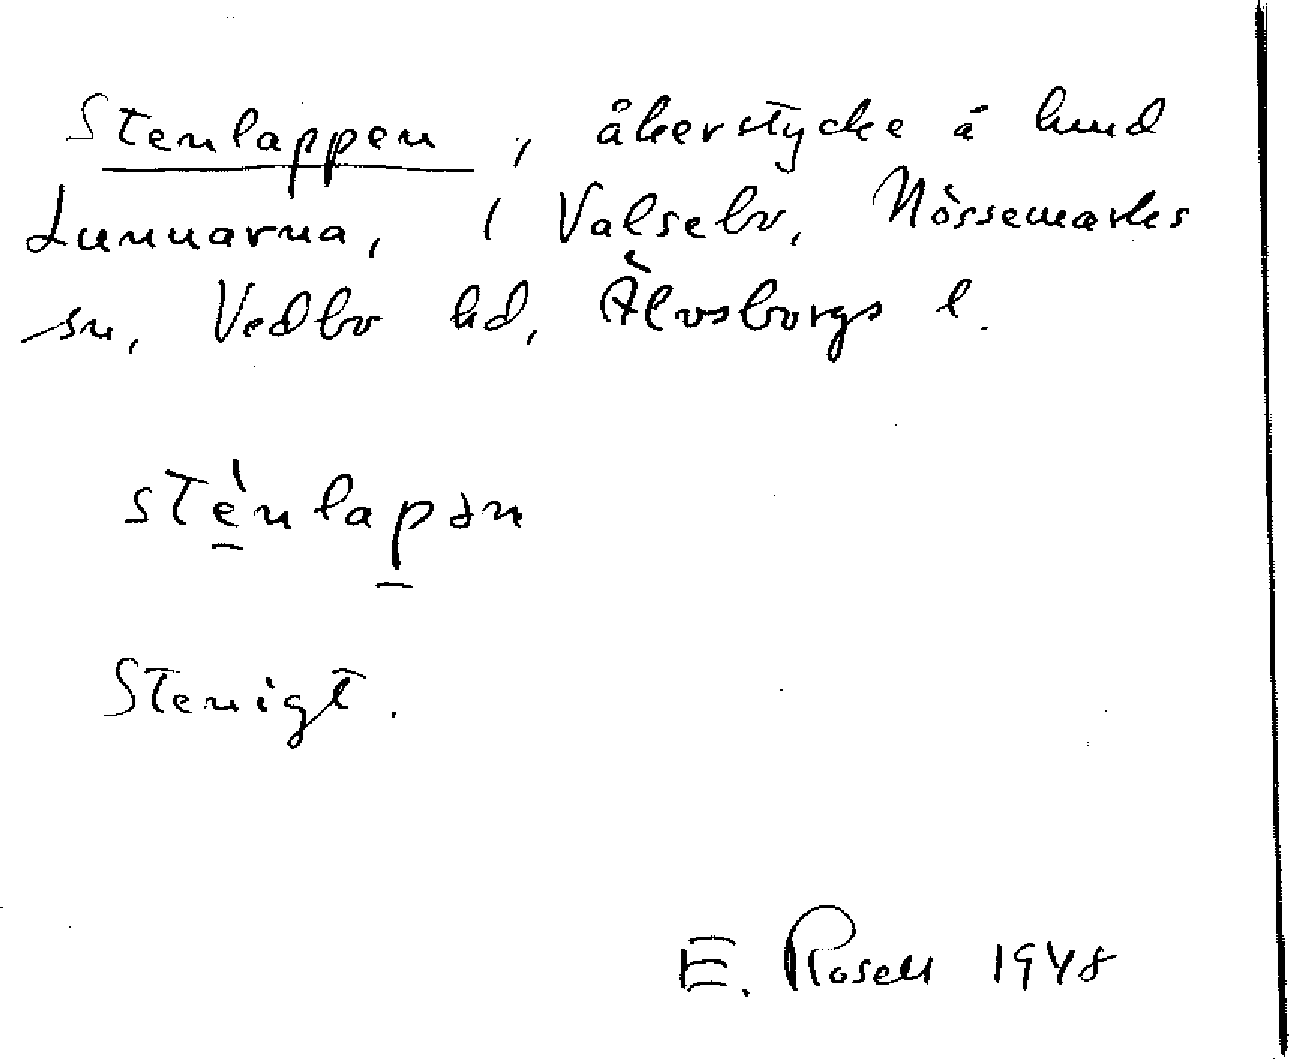 Stenlappen, åkerstycke å hmd
Lunnarna, i Valsebo, Nössemarks
sn, Vedbo hd, Älvsborgs l.
stè̱nlap̱ən
Stenigt.
E. Rosell 1948